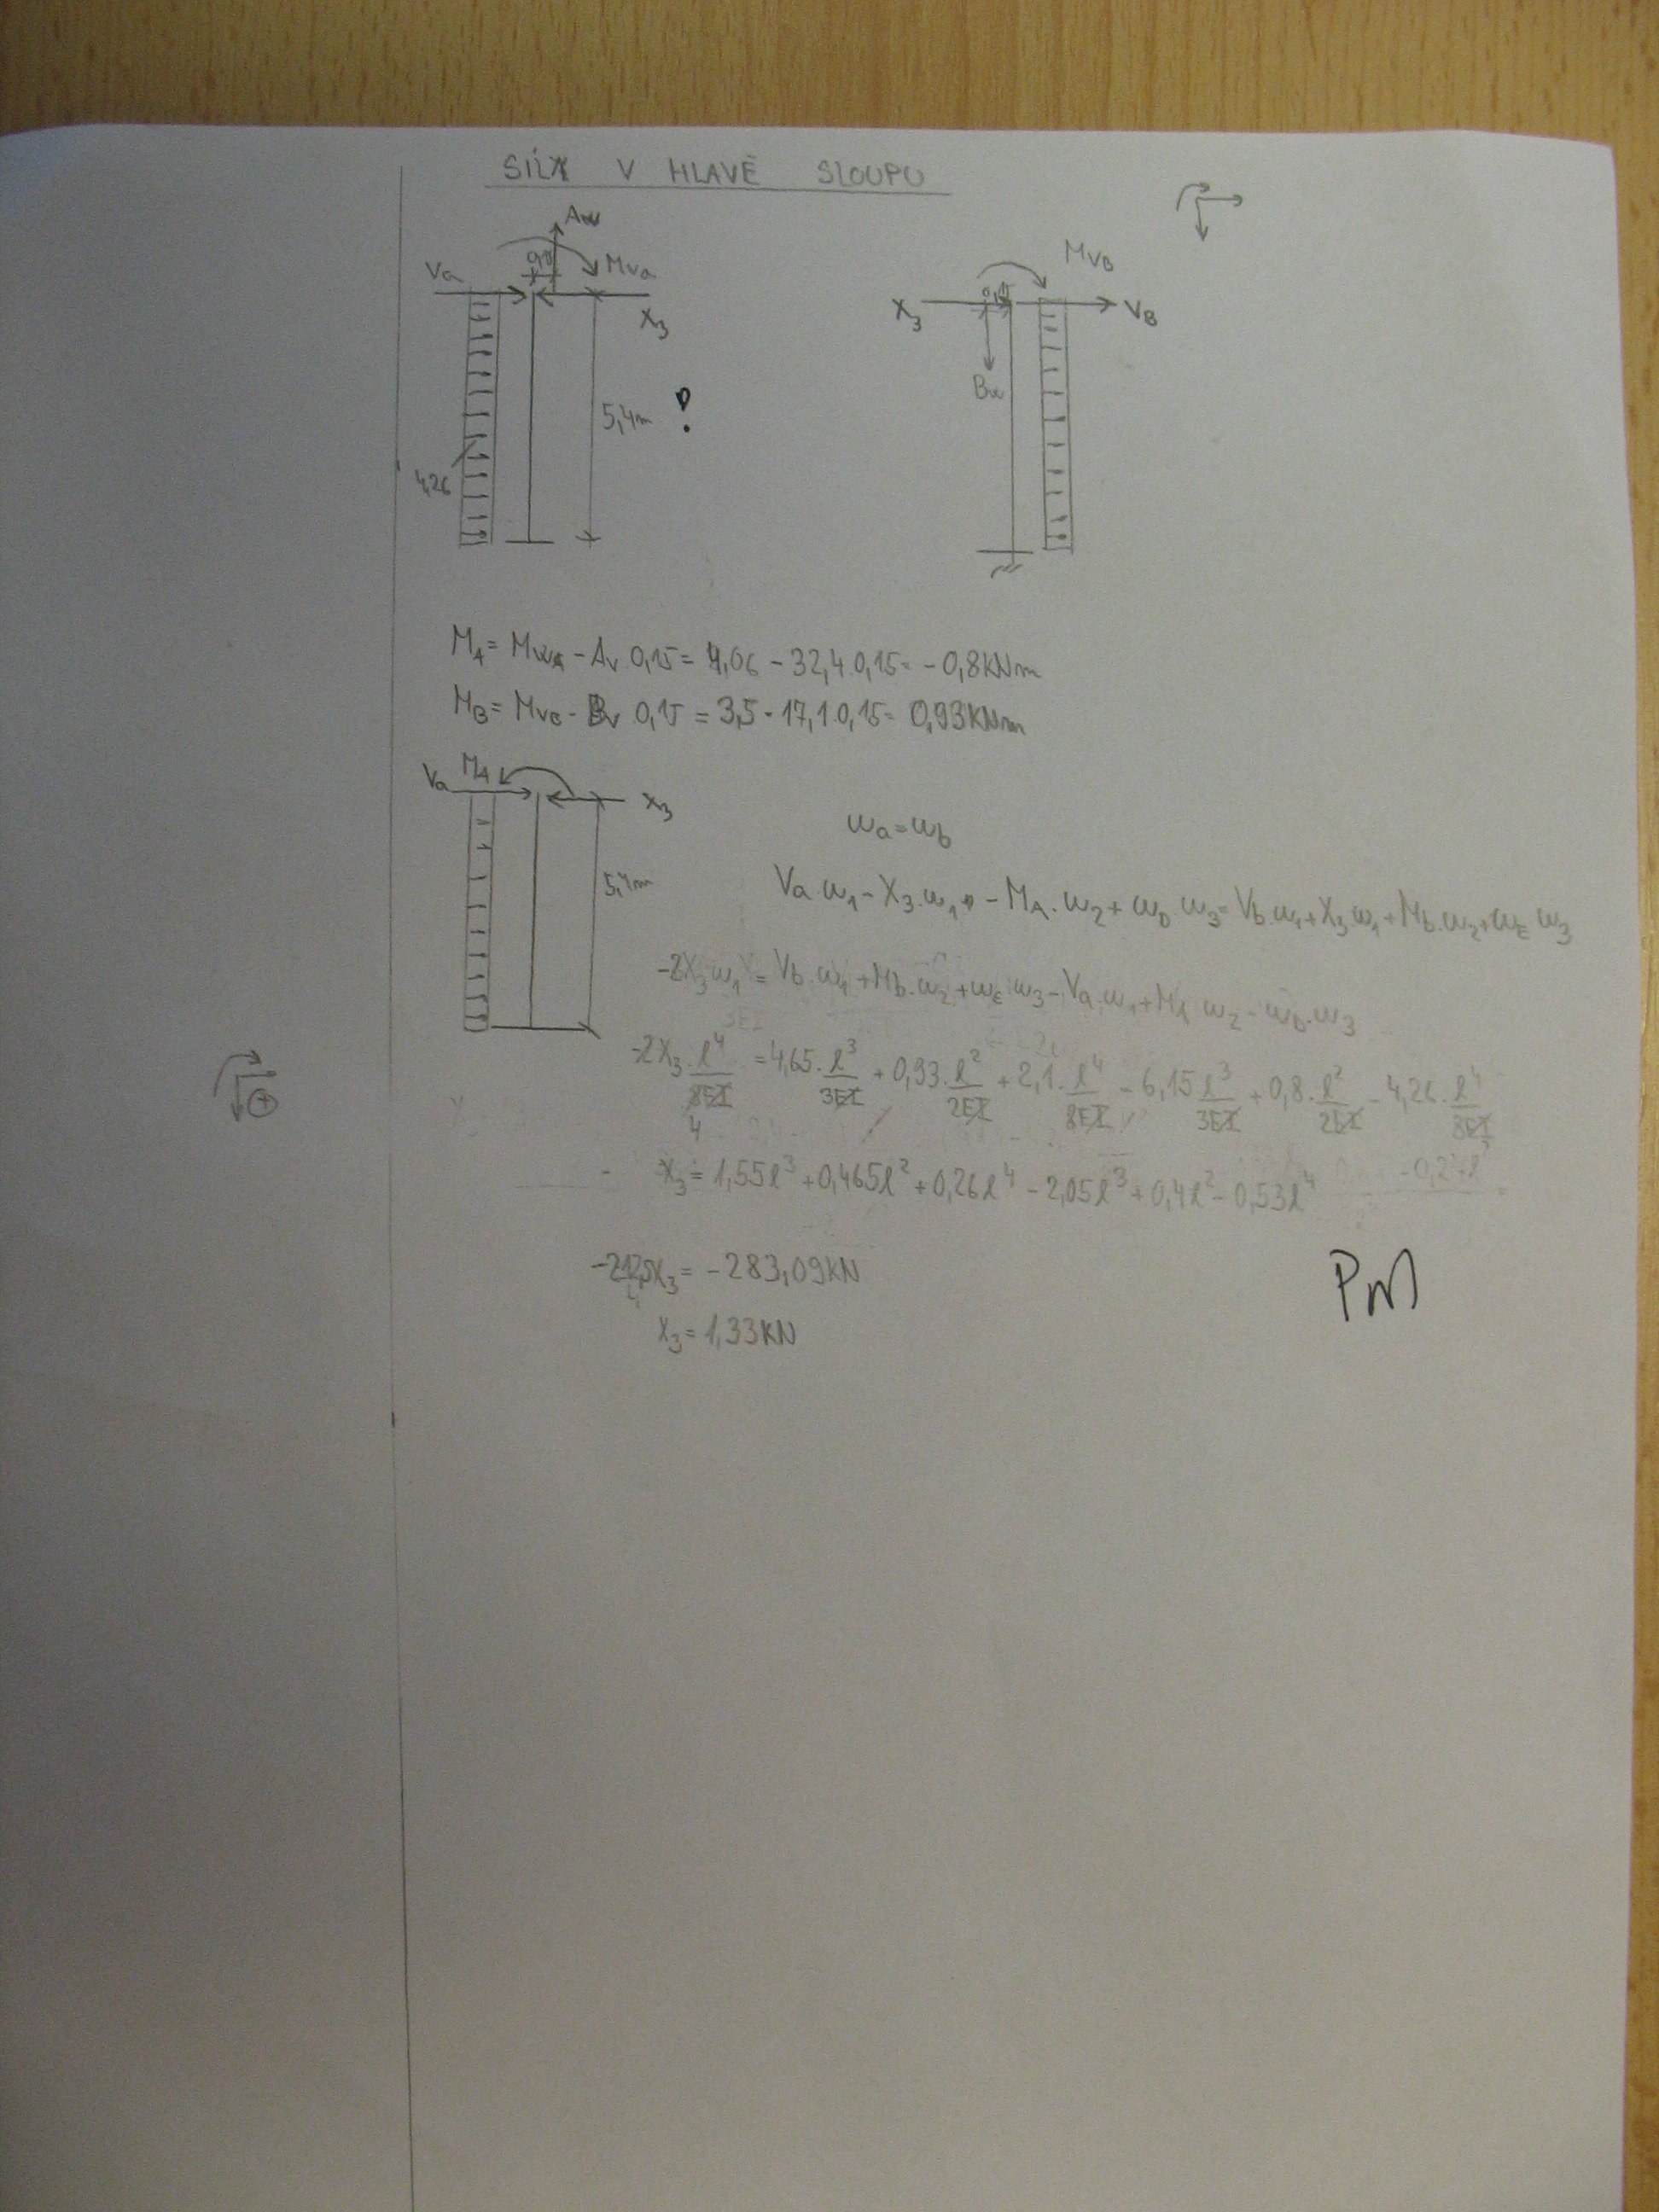 SÍLY V HLAVĚ SLOUPU
Va
Mva
X₃
4,26
5,4m !
X₃
MVB
VB
M_A = M_WA - Av 0,15 = 4,06 - 32,4 0,15 = -0,8KNm
M_B = M_VB - Bv 0,15 = 3,5 - 17,1 0,15 = 0,93KNm
Va
M_A
X₃
5,4m
wa = wb
Va w₁ - X₃ w₁ - M_A. w₂ + w_D w₃ = Vb w₁ + X₃ w₁ + Mb w₂ + w_E w₃
-2X₃ w₁ = Vb w₁ + Mb. w₂ + w_E w₃ - Va w₁ + M_A w₂ - w_D. w₃
-2X₃. l⁴/8EI = 4,65. l³/3EI + 0,93. l²/2EI + 2,1. l⁴/8EI - 6,15 l³/3EI + 0,8. l²/2EI - 4,26. l⁴/8EI
4
X₃ = 1,55l³ + 0,465l² + 0,26l⁴ - 2,05l³ + 0,4l² - 0,53l⁴
X₃ = -283,09KN
X₃ = 1,33KN